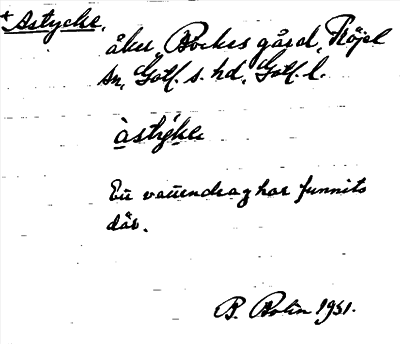 *Astycke,
åker, Bockes gård, Fröjel
sn, Gotl. s. hd, Gotl. l.
àstyke
En vattendrag har funnits
där.
B. Bolin 1931.